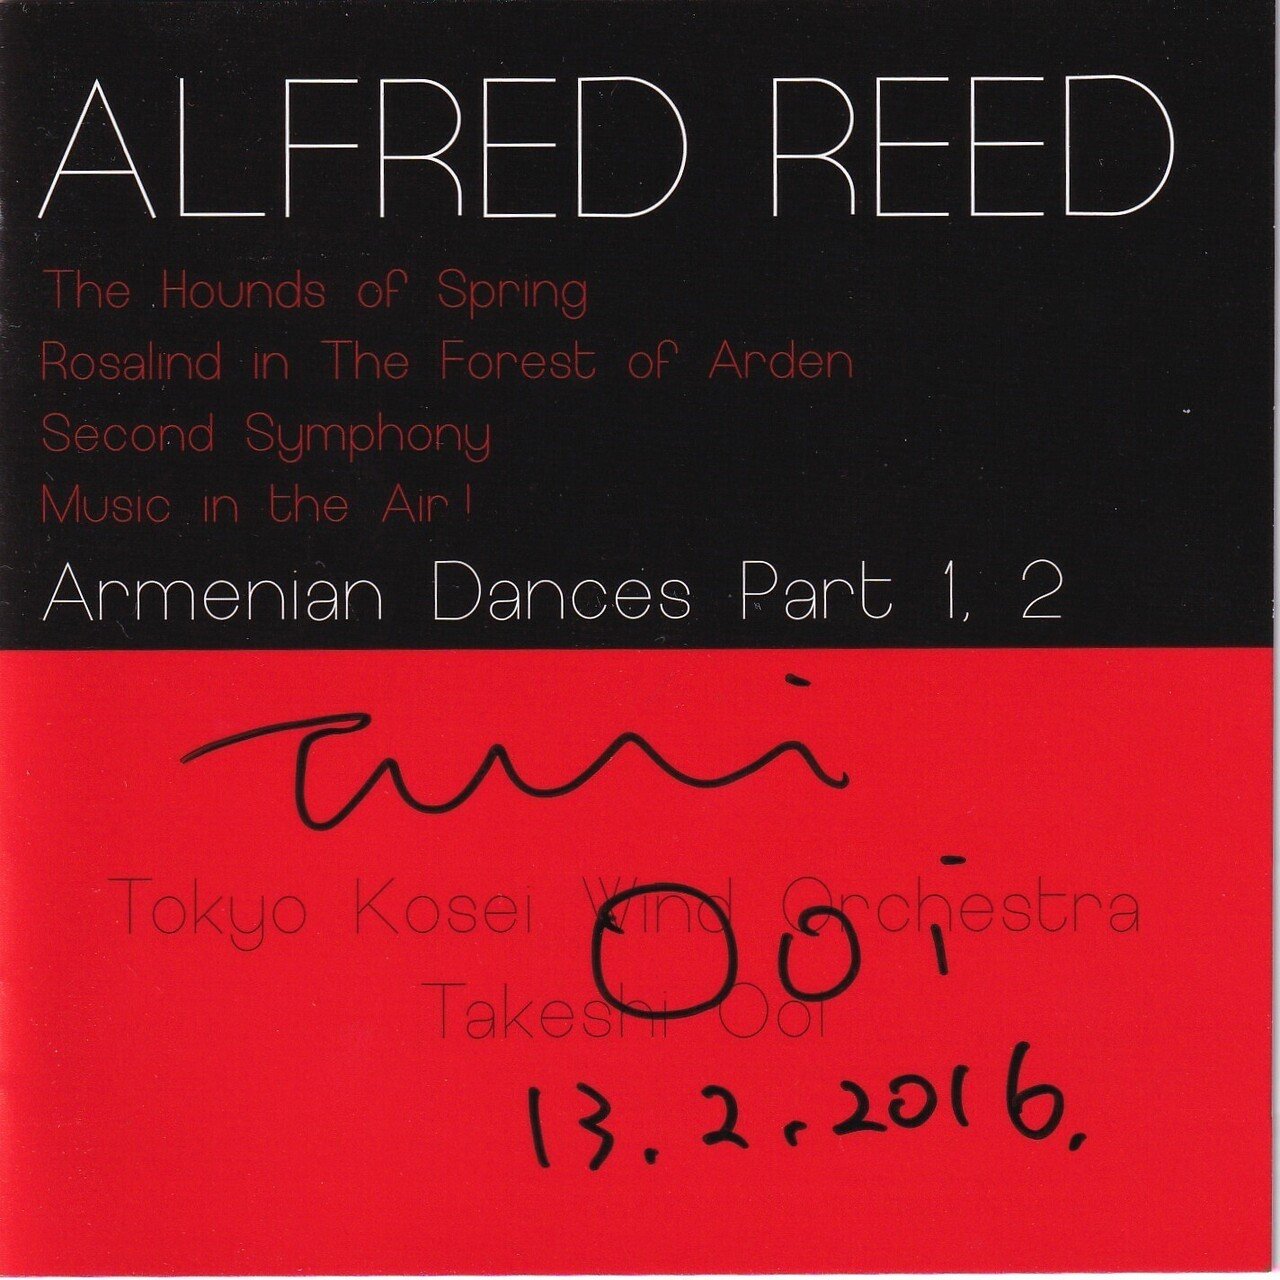 ALFRED REED
The Hounds of Spring
Rosalind in The Forest of Arden
Second Symphony
Music in the Air!
Armenian Dances Part 1, 2
Tokyo Kosei Wind Orchestra
Ooi
Takeshi Ooi
13.2.2016.